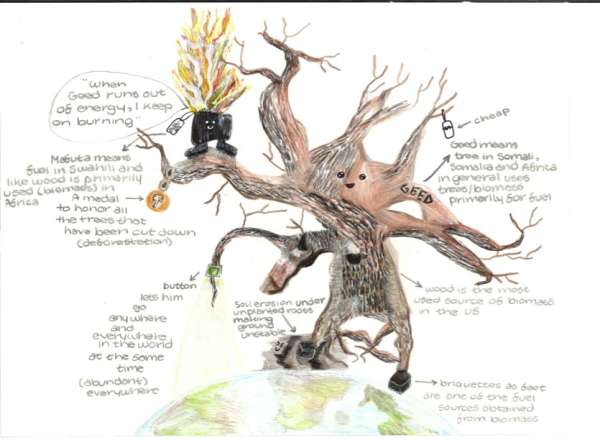 "When
Geed runs out
of energy, I keep
on burning"
Mafuta means
fuel in Swahili and
like wood is primarily
used (biomass) in
Africa
A medal
to honor all
the trees that
have been cut down
(deforestation)
cheap
Geed means
tree in Somali,
Somalia and Africa
in general uses
trees/biomass
primarily for fuel
GEED
button
lets him
go
anywhere
and
everywhere
in the world
at the same
time
(abundant)
everywhere
Soil erosion under
unplanted roots
making
ground
unstable
wood is the most
used source of biomass
in the US
briquettes as feet
are one of the fuel
sources obtained
from biomass